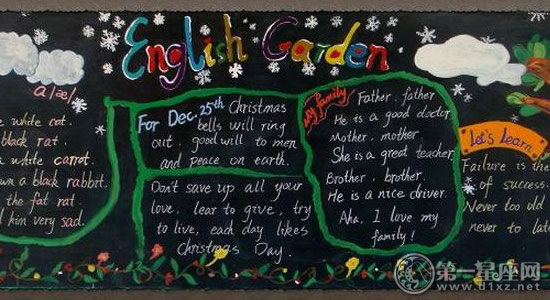 English Garden
a /æ/
a white cat.
black rat.
a white carrot.
a black rabbit.
the fat rat.
him very sad.
For Dec. 25th Christmas
bells will ring
out. good will to men
and peace on earth.
Don't save up all your
love, lear to give, try
to live, each day likes
Christmas Day.
My family
Father, father.
He is a good doctor
Mother, mother.
She is a great teacher
Brother, brother.
He is a nice driver.
Aha, I love my
family!
Let's Learn
Failure is the
of success.
Never too old
never to late
第一星座网
www.d1xz.net